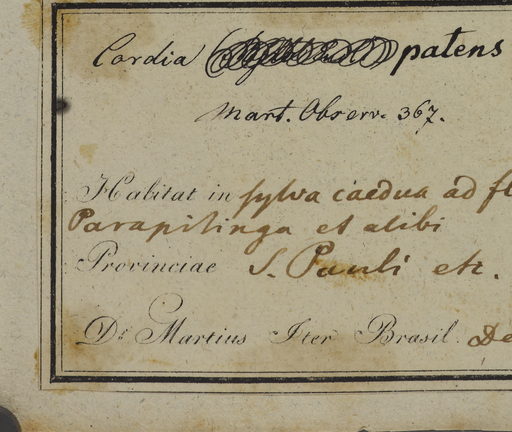 Cordia patens
Mart. Observ. 367.
Habitat in sylva caedua ad fl
Parapitinga et alibi
Provinciae S. Pauli etc.
Dr Martius Iter Brasil. De